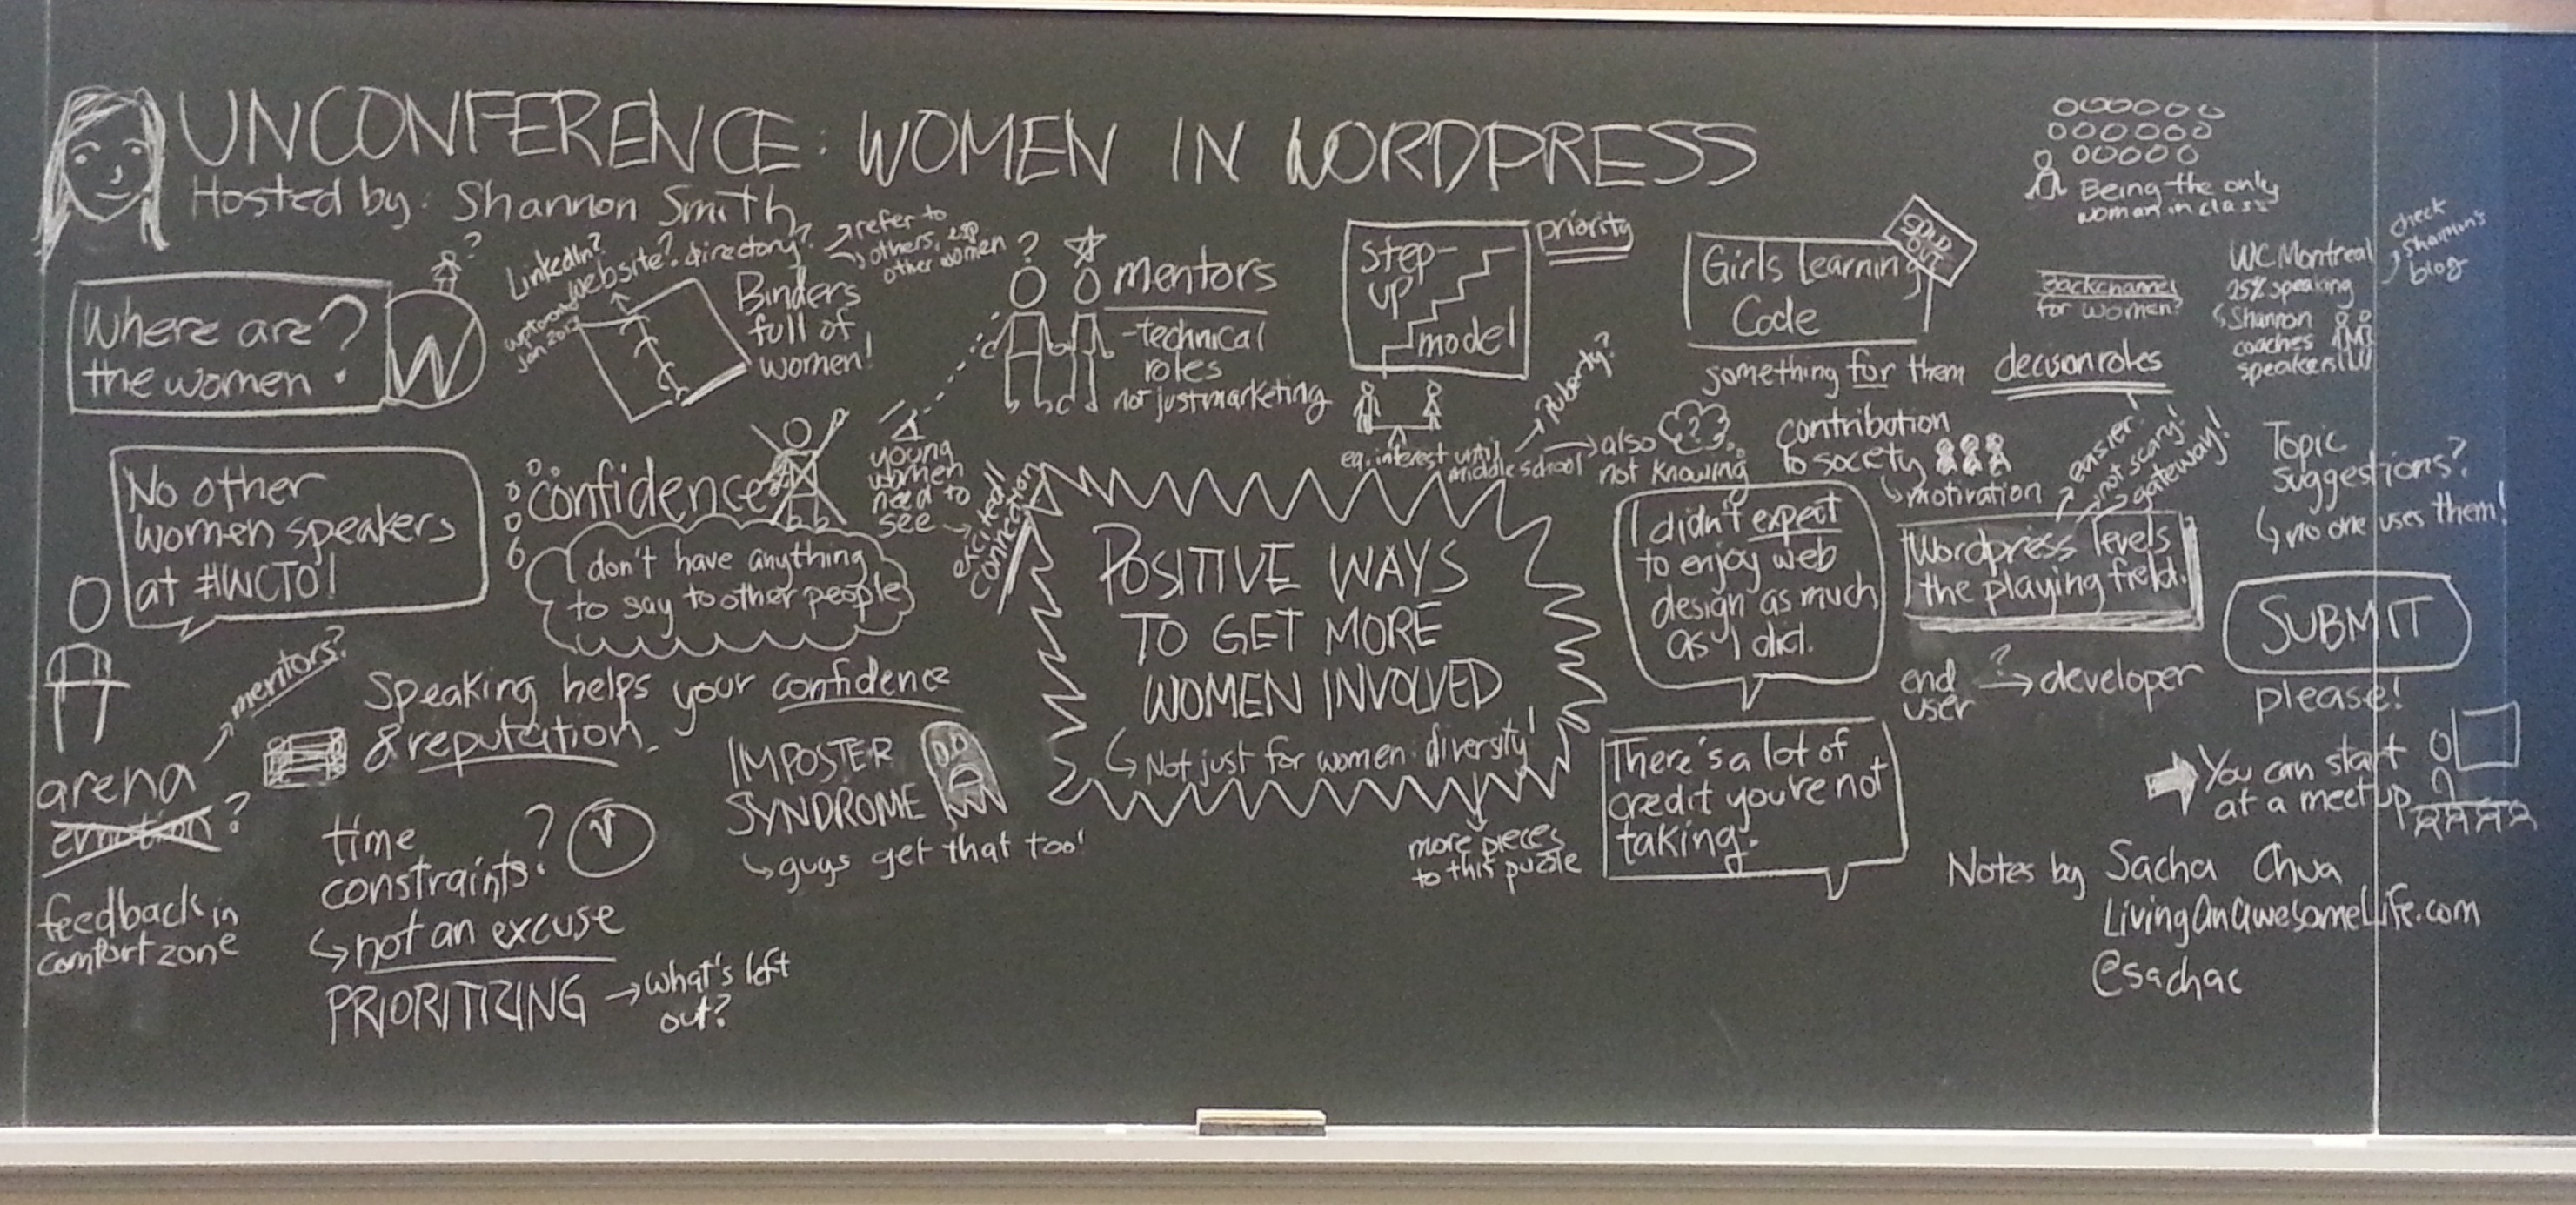 UNCONFERENCE: WOMEN IN WORDPRESS
Hosted by: Shannon Smith
?
Where are
the women?
W
LinkedIn?
website?
directory?
wptoronto
Jan 2013
refer to
others, esp
other women
Binders
full of
women!
?
mentors
-technical
roles
not just marketing
step-
up
model
priority
eg. interest until
middle school
Puberty?
also
not knowing
?
Girls Learning
Code
SOLD
OUT
something for them
Being the only
woman in class
backchannel
for women?
decision roles
WC Montreal
25% speaking
Shannon
coaches
speakers
check
Shannon's
blog
No other
women speakers
at #WCTO!
confidence
I don't have anything
to say to other people
young
women
need to
see
excited!
connection
POSITIVE WAYS
TO GET MORE
WOMEN INVOLVED
Not just for women: diversity!
more pieces
to this puzzle
contribution
to society
motivation
I didn't expect
to enjoy web
design as much
as I did.
There's a lot of
credit you're not
taking.
easier!
not scary!
gateway!
Wordpress levels
the playing field.
end
user
?
developer
Topic
suggestions?
no one uses them!
SUBMIT
please!
You can start
at a meetup
mentors?
arena
emotion?
feedback in
comfort zone
Speaking helps your confidence
& reputation.
time
constraints?
not an excuse
PRIORITIZING
what's left
out?
IMPOSTER
SYNDROME
guys get that too!
Notes by Sacha Chua
LivingAnAwesomeLife.com
@sachac